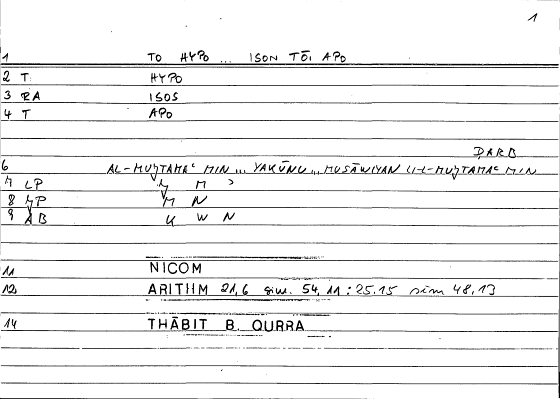 1
1 TO HYPO ... ISON TŌI APO
2 T HYPO
3 RA ISOS
4 T APO
ḌARB
6 AL-MUǦTAMAʿ MIN ... YAKŪNU ... MUSĀWIYAN LI-L-MUǦTAMAʿ MIN
7 LP Ǧ M ʾ
8 ǦP M N
9 AB K W N
11 NICOM
12 ARITHM 21,6 sim. 54,11 : 25.15 sim 48,13
14 THĀBIT B. QURRA